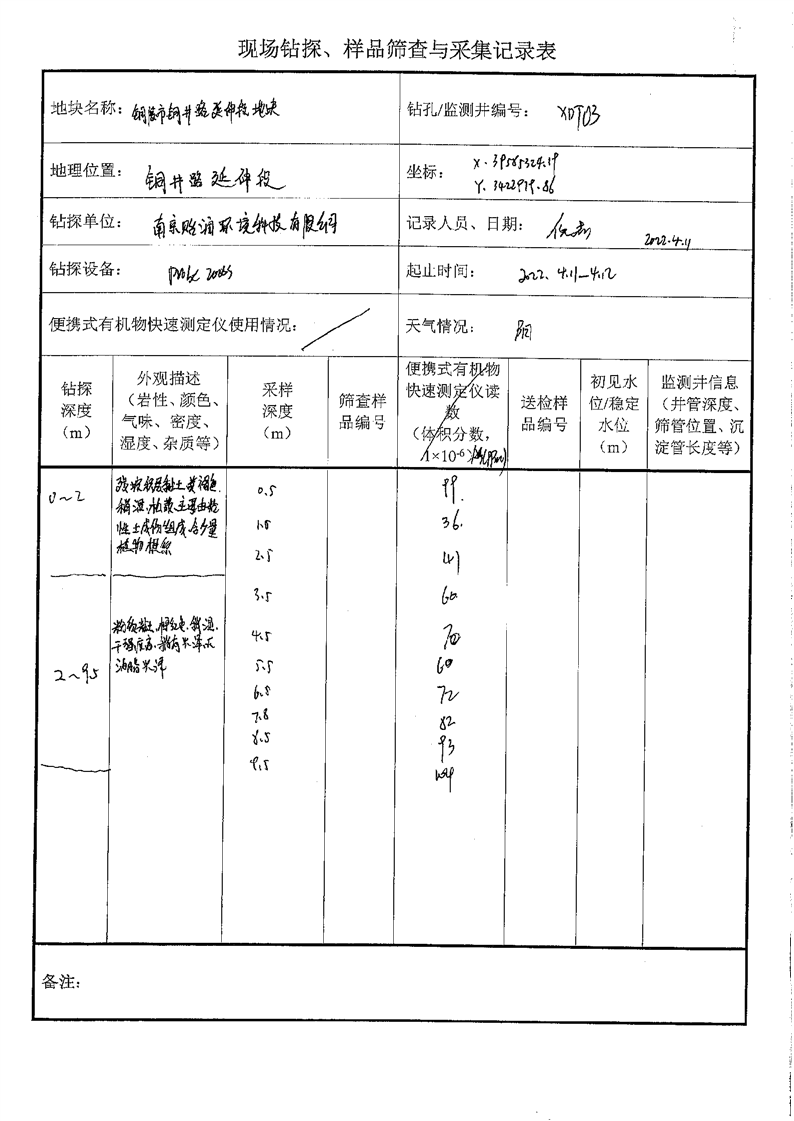 现场钻探、样品筛查与采集记录表
地块名称： 铜井路延伸段地块 钻孔/监测井编号： XDT03
地理位置： 铜井路延伸段 坐标： X.39565324.19
Y.3422979.86
钻探单位： 南京 环境科技有限公司 记录人员、日期： 2022.4.11
钻探设备： 起止时间： 2022. 4.11—4.12
便携式有机物快速测定仪使用情况： 天气情况： 阴
钻探
深度
（m）
外观描述
（岩性、颜色、
气味、密度、
湿度、杂质等）
采样
深度
（m）
筛查样
品编号
便携式有机物
快速测定仪读
数
（体积分数，
1×10-6）
送检样
品编号
初见水
位/稳定
水位
（m）
监测井信息
（井管深度、
筛管位置、沉
淀管长度等）
0～2
黏土 黄褐色.
稍湿.松散.主要由黏
性土成份组成.含少量
植物根系
0.5 99.
1.5 36.
2.5 41
3.5 60
2～9.5
粉质黏土, 稍湿.
干强度高.稍有光泽
油脂光泽
4.5 70
5.5 60
6.5 72
7.8 82
8.5 93
9.5 104
备注：